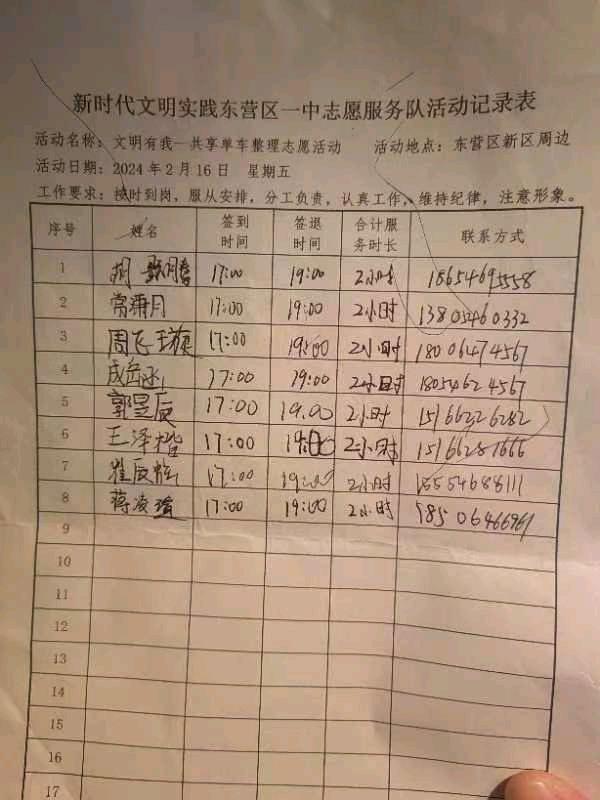 新时代文明实践东营区一中志愿服务队活动记录表
活动名称：文明有我—共享单车整理志愿活动 活动地点：东营区新区周边
活动日期：2024年2月16日 星期五
工作要求：按时到岗，服从安排，分工负责，认真工作，维持纪律，注意形象。
序号 姓名 签到时间 签退时间 合计服务时长 联系方式
1 17:00 19:00 2小时
2 17:00 19:00 2小时 13805460332
3 17:00 19:00 2小时 18006474567
4 17:00 19:00 2小时 18054624567
5 郭昱辰 17:00 19:00 2小时 15166226282
6 王泽楷 17:00 19:00 2小时 15166281666
7 崔辰铭 17:00 19:00 2小时 18554688111
8 蒋凌瑜 17:00 19:00 2小时
9
10
11
12
13
14
15
16
17